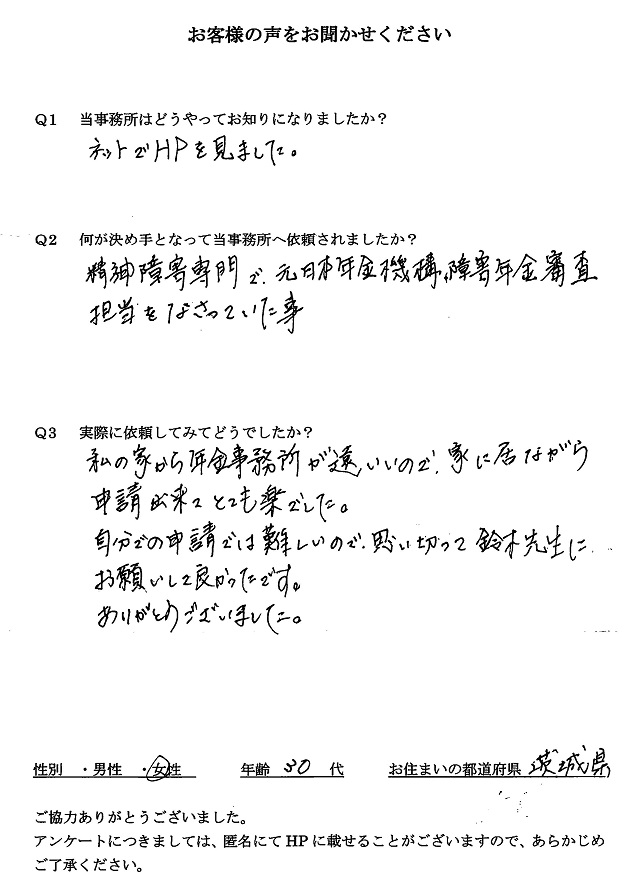 お客様の声をお聞かせください
Q1 当事務所はどうやってお知りになりましたか？
ネットでHPを見ました。
Q2 何が決め手となって当事務所へ依頼されましたか？
精神障害専門で、元日本年金機構、障害年金審査
担当をなさっていた事
Q3 実際に依頼してみてどうでしたか？
私の家から年金事務所が遠いいので、家に居ながら
申請出来てとても楽でした。
自分での申請では難しいので、思い切って鈴木先生に
お願いして良かったです。
ありがとうございました。
性別 ・男性 ・女性 年齢 30 代 お住まいの都道府県 茨城県
ご協力ありがとうございました。
アンケートにつきましては、匿名にてHPに載せることがございますので、あらかじめ
ご了承ください。